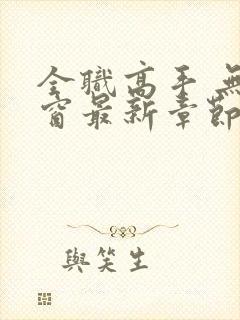 全職高手 無
窗最新章節
與笑生